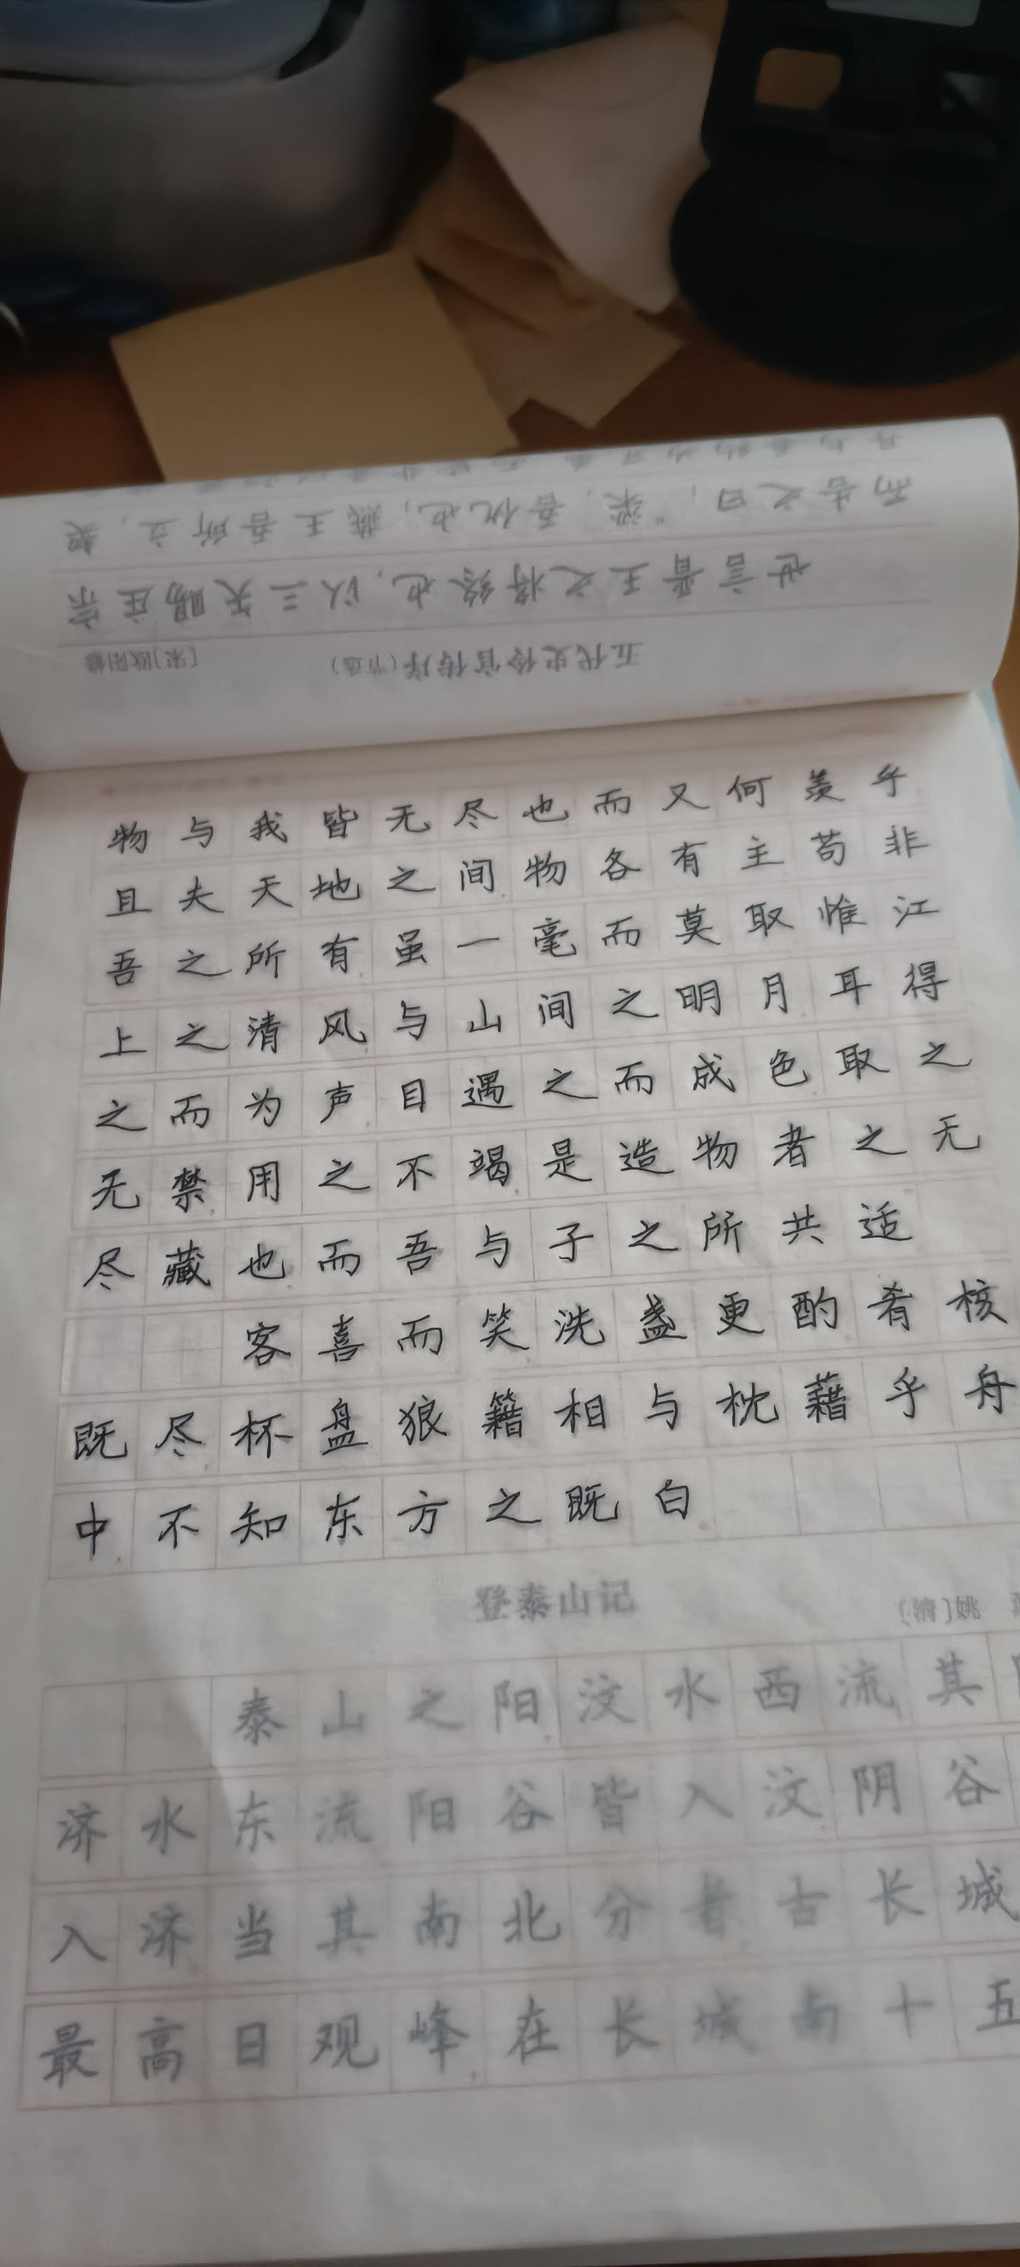 世言晋王之将终也，以三矢赐庄宗
而告之曰：“梁，吾仇也；燕王吾所立，契
五代史伶官传序（节选） [宋]欧阳修
物与我皆无尽也而又何羡乎
且夫天地之间物各有主苟非
吾之所有虽一毫而莫取惟江
上之清风与山间之明月耳得
之而为声目遇之而成色取之
无禁用之不竭是造物者之无
尽藏也而吾与子之所共适
客喜而笑洗盏更酌肴核
既尽杯盘狼籍相与枕藉乎舟
中不知东方之既白
登泰山记 [清]姚
泰山之阳汶水西流其
济水东流阳谷皆入汶阴谷
入济当其南北分者古长城
最高日观峰在长城南十五